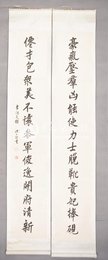 豪氣壓群凶能使力士脫靴貴妃捧硯
仙才包眾美不讓參軍俊逸開府清新